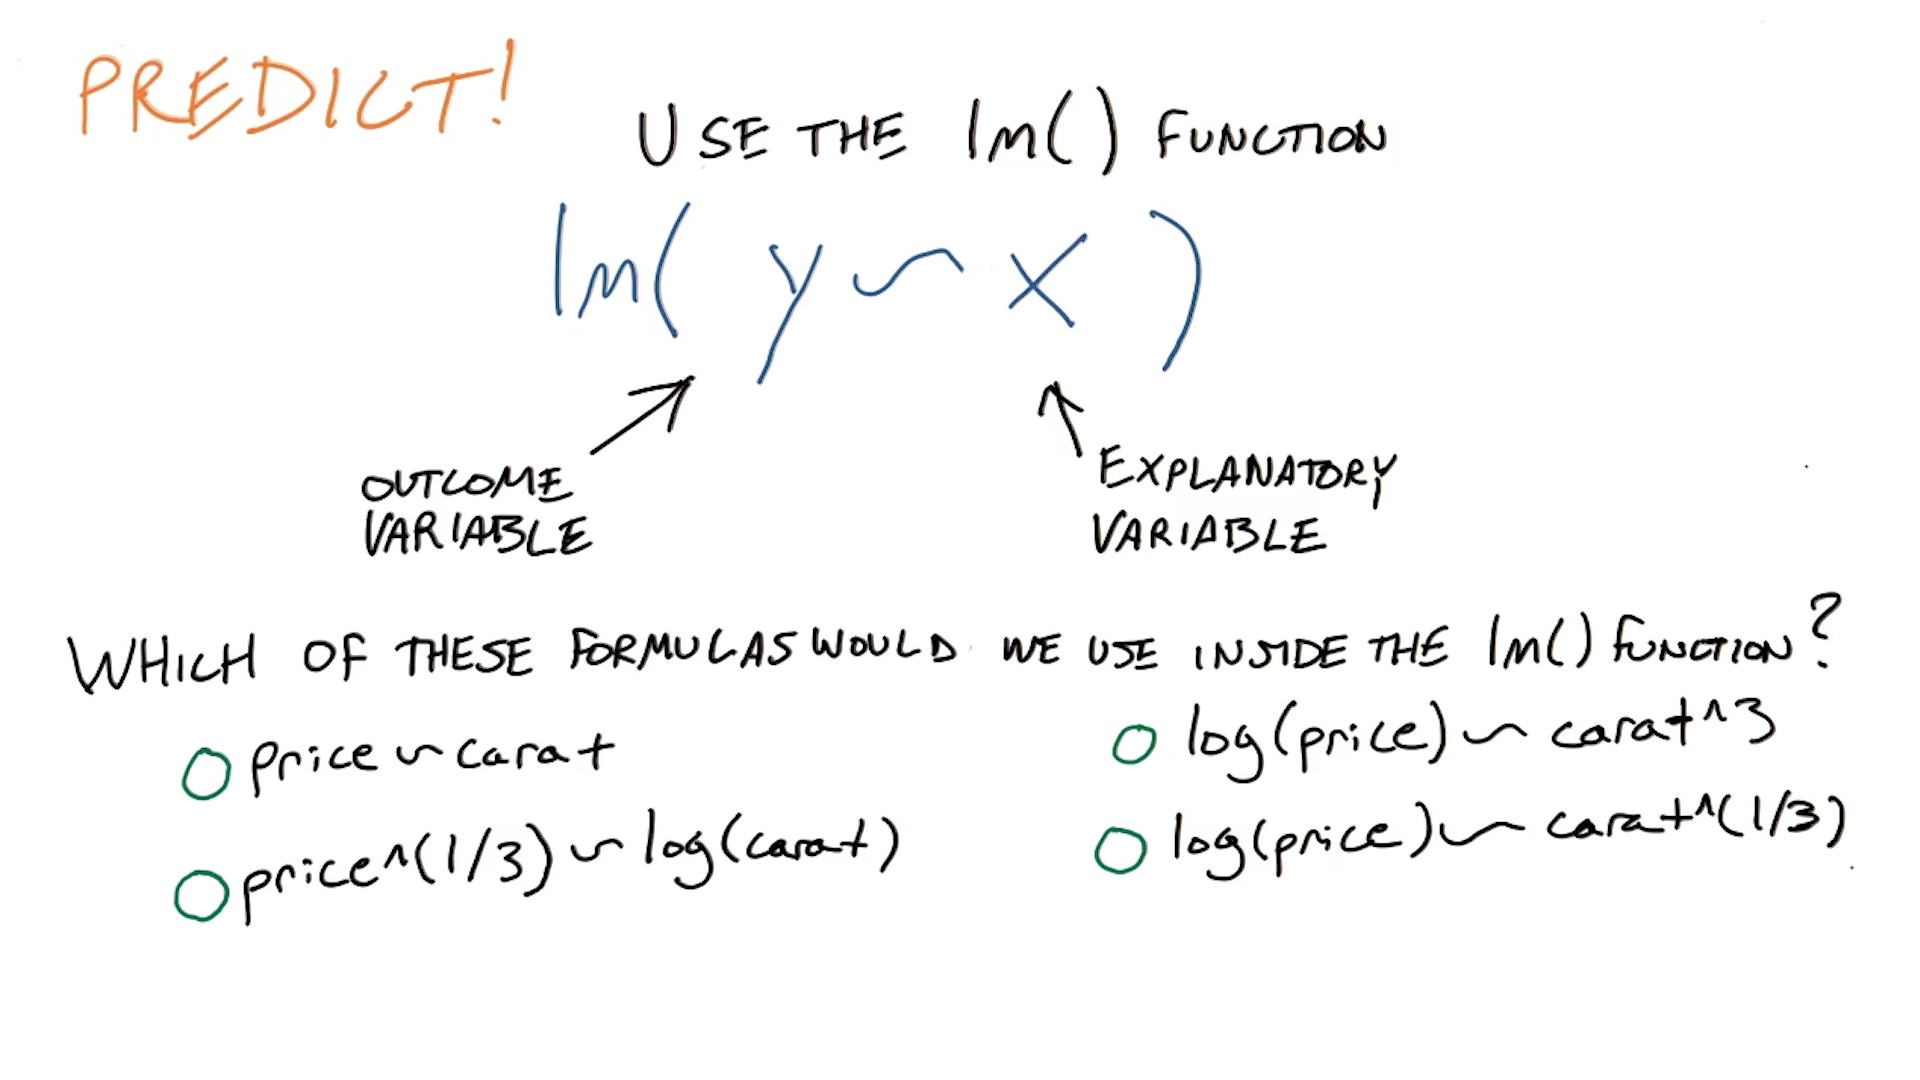 PREDICT!
USE THE lm() FUNCTION
lm( y ~ x )
OUTCOME
VARIABLE
EXPLANATORY
VARIABLE
WHICH OF THESE FORMULAS WOULD WE USE INSIDE THE lm() FUNCTION?
price ~ carat
price^(1/3) ~ log(carat)
log(price) ~ carat^3
log(price) ~ carat^(1/3)